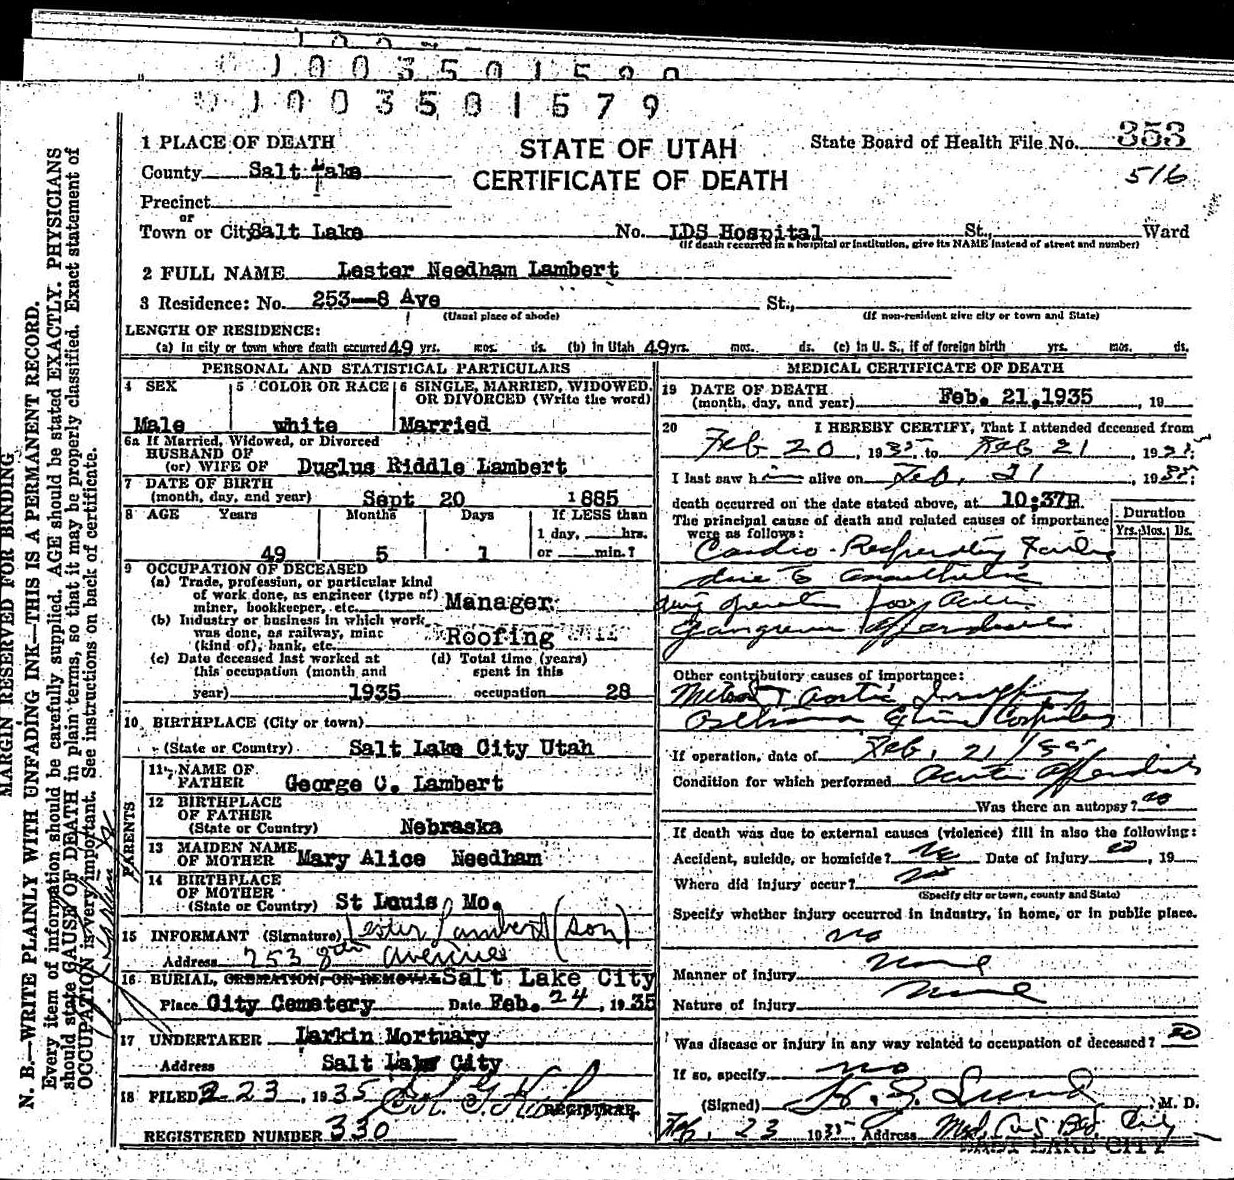 1003501579
1 PLACE OF DEATH
STATE OF UTAH
CERTIFICATE OF DEATH
State Board of Health File No. 353
516
County Salt Lake
Precinct
or
Town or City Salt Lake No. LDS Hospital St., Ward
(If death recurred in a hospital or institution, give its NAME instead of street and number)
2 FULL NAME Lester Needham Lambert
3 Residence: No. 253--8 Ave St.,
(Usual place of abode) (If non-resident give city or town and State)
LENGTH OF RESIDENCE:
(a) in city or town where death occurred 49 yrs. mos. ds. (b) in Utah 49 yrs. mos. ds. (c) in U. S., if of foreign birth yrs. mos. ds.
PERSONAL AND STATISTICAL PARTICULARS
4 SEX 5 COLOR OR RACE 6 SINGLE, MARRIED, WIDOWED, OR DIVORCED (Write the word)
Male white Married
6a If Married, Widowed, or Divorced
HUSBAND OF
(or) WIFE OF Duglus Riddle Lambert
7 DATE OF BIRTH
(month, day, and year) Sept 20 1885
8 AGE Years Months Days If LESS than
1 day, hrs.
49 5 1 or min.?
9 OCCUPATION OF DECEASED
(a) Trade, profession, or particular kind
of work done, as engineer (type of)
miner, bookkeeper, etc. Manager
(b) Industry or business in which work
was done, as railway, mine
(kind of), bank, etc. Roofing
(c) Date deceased last worked at (d) Total time (years)
this occupation (month and spent in this
year) 1935 occupation 28
10 BIRTHPLACE (City or town)
(State or Country) Salt Lake City Utah
PARENTS
11 NAME OF
FATHER George C. Lambert
12 BIRTHPLACE
OF FATHER
(State or Country) Nebraska
13 MAIDEN NAME
OF MOTHER Mary Alice Needham
14 BIRTHPLACE
OF MOTHER
(State or Country) St Louis, Mo.
15 INFORMANT (Signature) Lester Lambert (son)
Address 253 8th avenue
16 BURIAL, CREMATION, OR REMOVAL Salt Lake City
Place City Cemetery Date Feb. 24, 1935
17 UNDERTAKER Larkin Mortuary
Address Salt Lake City
18 FILED 2-23, 1935
REGISTRAR.
REGISTERED NUMBER 330
MEDICAL CERTIFICATE OF DEATH
19 DATE OF DEATH
(month, day, and year) Feb. 21, 1935, 19
20 I HEREBY CERTIFY, That I attended deceased from
Feb 20, 1935, to Feb 21, 1935;
I last saw him alive on Feb, 21, 1935;
death occurred on the date stated above, at 10:37P.
The principal cause of death and related causes of importance
were as follows:
Duration
Yrs. Mos. Ds.
Cardio-Respiratory Failure
due to Anaesthetic
during operation for acute
Gangrenous Appendicitis
Other contributory causes of importance:
Mitral & Aortic
Asthma
If operation, date of Feb, 21/35
Condition for which performed Acute Appendicitis
Was there an autopsy? no
If death was due to external causes (violence) fill in also the following:
Accident, suicide, or homicide? no Date of injury no, 19
Where did injury occur? no
(Specify city or town, county and State)
Specify whether injury occurred in industry, in home, or in public place.
no
Manner of injury none
Nature of injury none
Was disease or injury in any way related to occupation of deceased? no
If so, specify no
(Signed) M. D.
Feb, 23 1935 Address City
SALT LAKE CITY
MARGIN RESERVED FOR BINDING
N. B.—WRITE PLAINLY WITH UNFADING INK—THIS IS A PERMANENT RECORD.
Every item of information should be carefully supplied. AGE should be stated EXACTLY. PHYSICIANS
should state CAUSE OF DEATH in plain terms, so that it may be properly classified. Exact statement of
OCCUPATION is very important. See instructions on back of certificate.